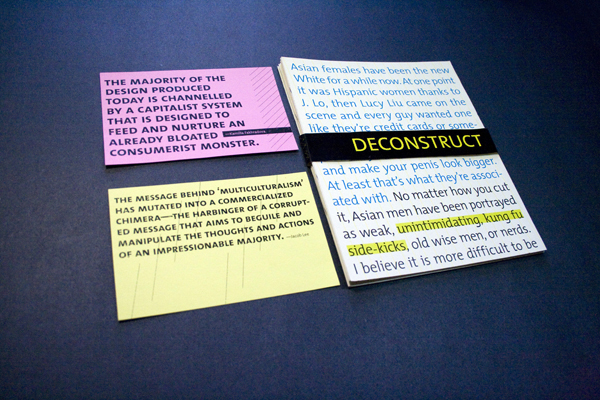 THE MAJORITY OF THE
DESIGN PRODUCED
TODAY IS CHANNELLED
BY A CAPITALIST SYSTEM
THAT IS DESIGNED TO
FEED AND NURTURE AN
ALREADY BLOATED
CONSUMERIST MONSTER.
THE MESSAGE BEHIND ‘MULTICULTURALISM’
HAS MUTATED INTO A COMMERCIALIZED
CHIMERA—THE HARBINGER OF A CORRUPT-
ED MESSAGE THAT AIMS TO BEGUILE AND
MANIPULATE THE THOUGHTS AND ACTIONS
OF AN IMPRESSIONABLE MAJORITY.
Asian females have been the new
White for a while now. At one point
it was Hispanic women thanks to
J. Lo, then Lucy Liu came on the
scene and every guy wanted one
like they're credit cards or some-
DECONSTRUCT
and make your penis look bigger.
At least that's what they're associ-
ated with. No matter how you cut
it, Asian men have been portrayed
as weak, unintimidating, kung fu
side-kicks, old wise men, or nerds.
I believe it is more difficult to be